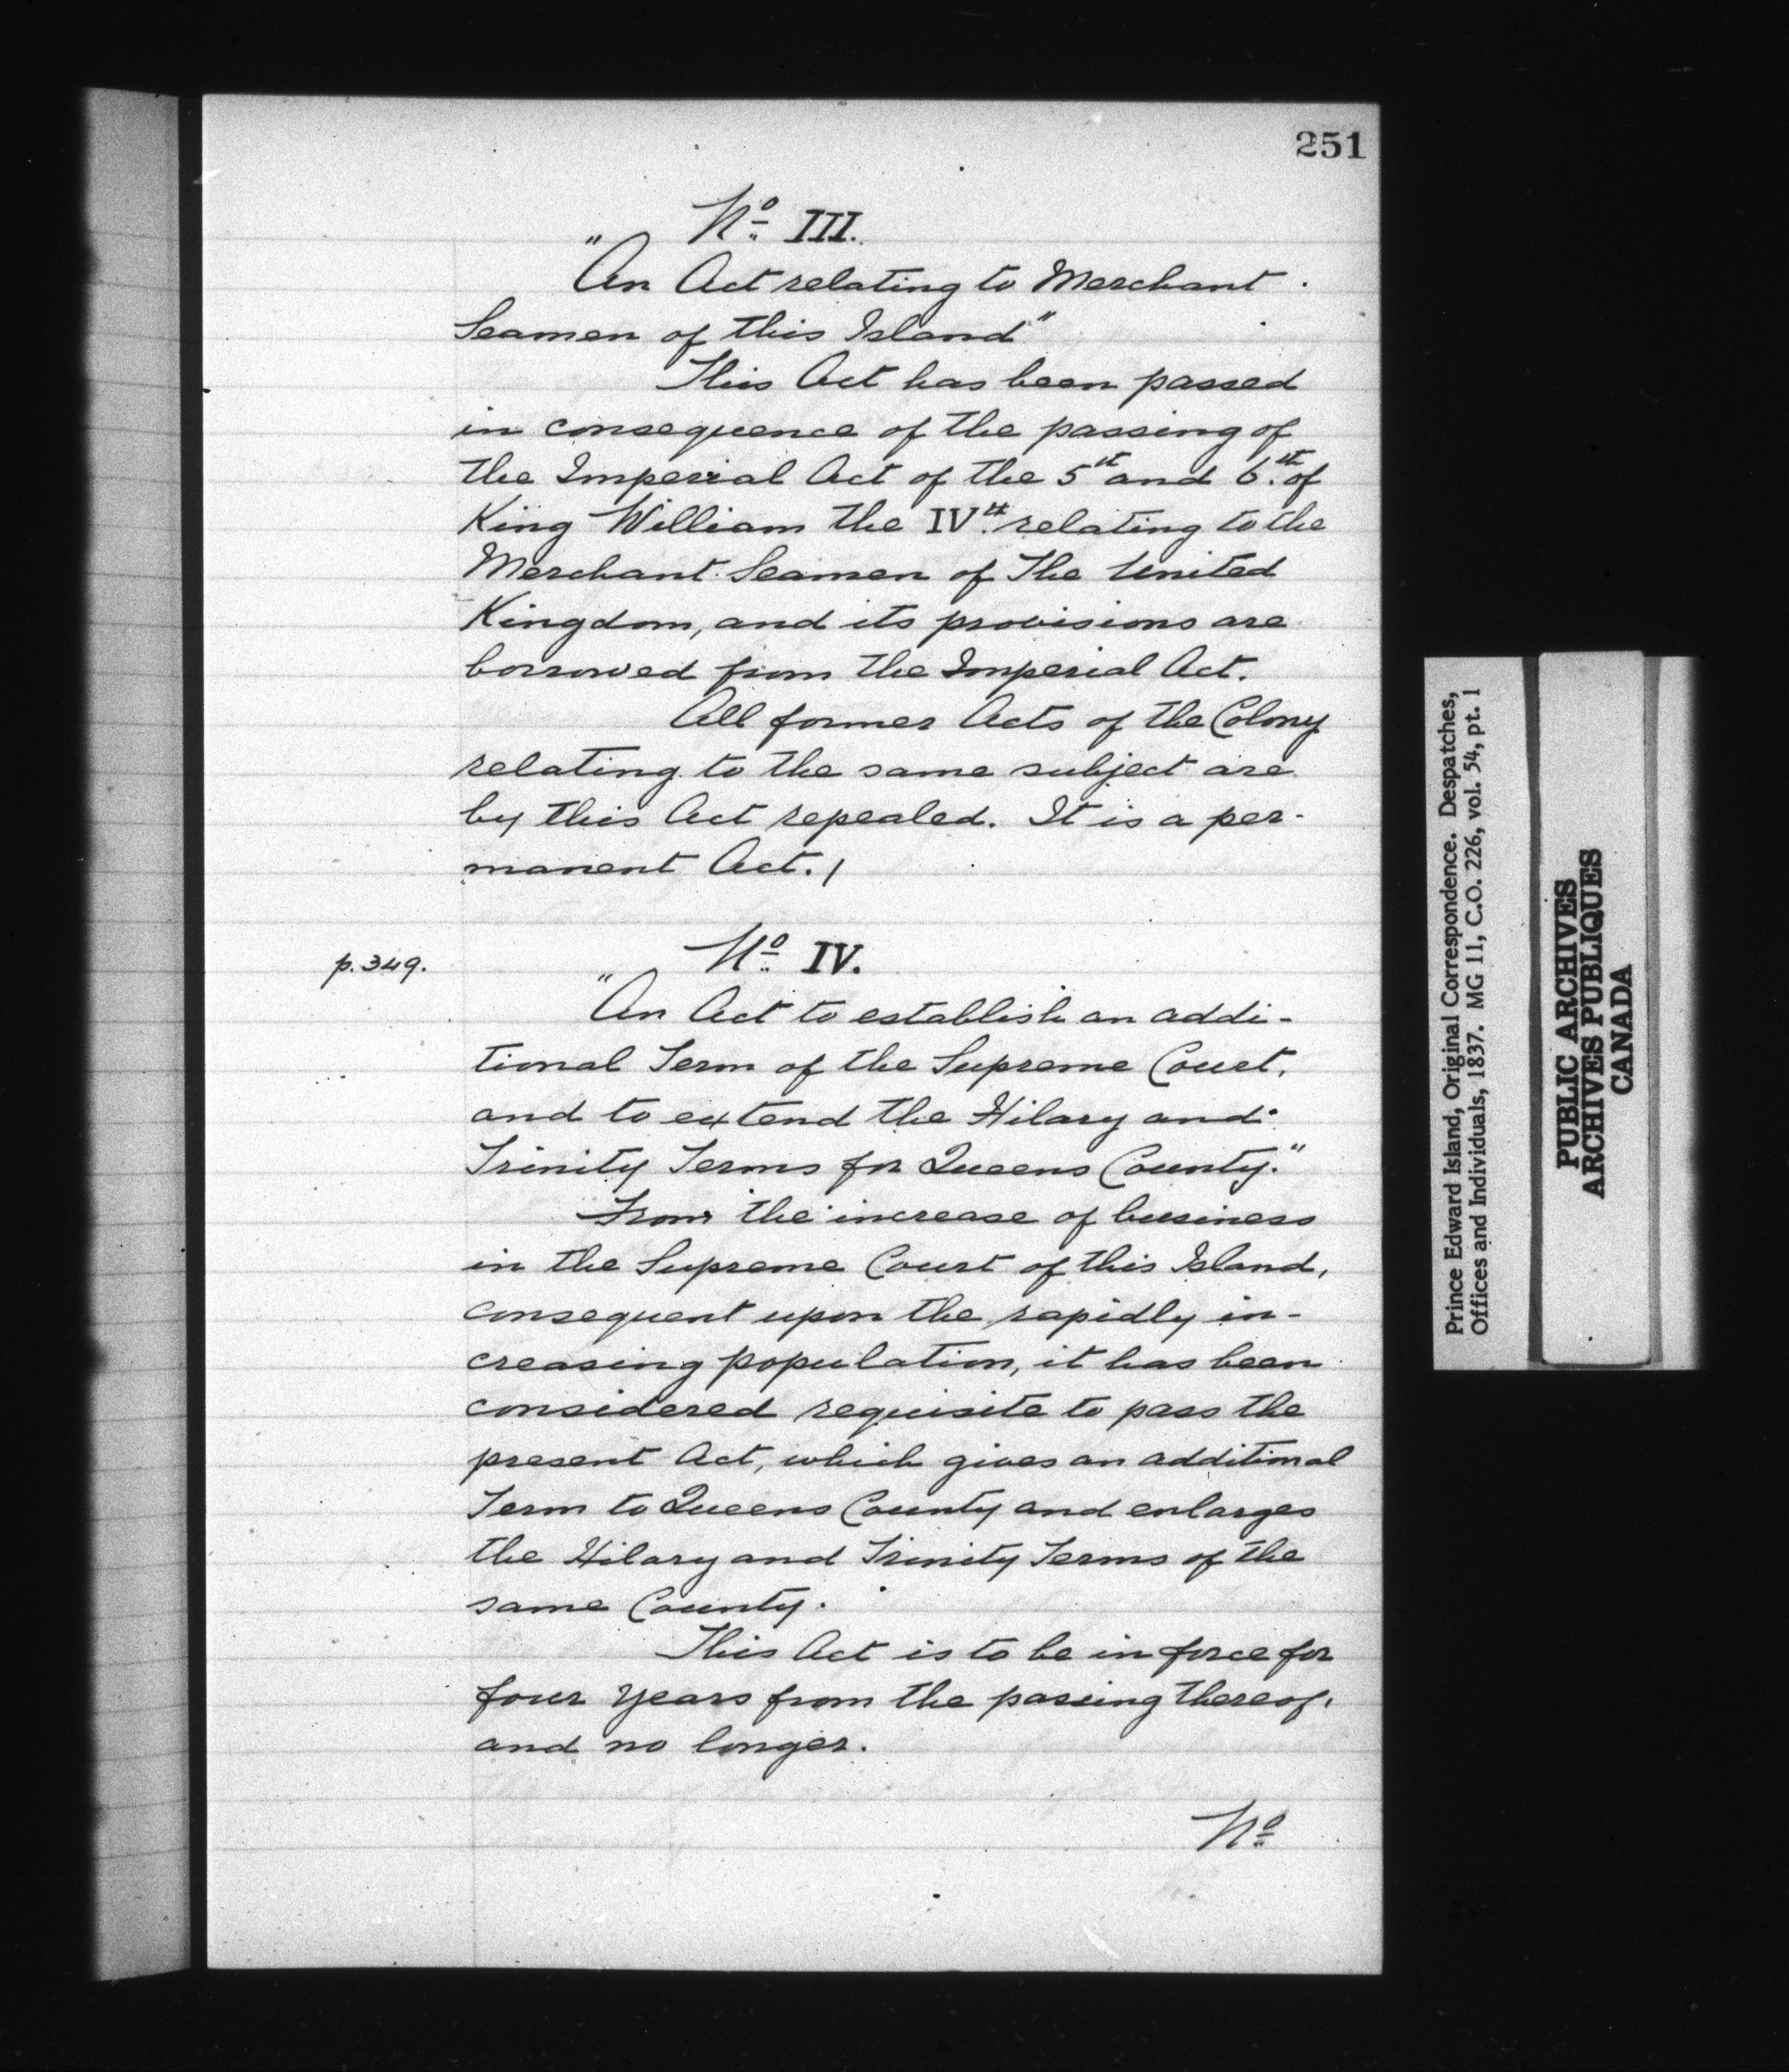 251
Nº III.
"An Act relating to Merchant
Seamen of this Island"
This Act has been passed
in consequence of the passing of
the Imperial Act of the 5th and 6th of
King William the IVth relating to the
Merchant Seamen of The United
Kingdom, and its provisions are
borrowed from the Imperial Act.
All former Acts of the Colony
relating to the same subject are
by this Act repealed. It is a per-
manent Act.
p. 349.
Nº IV.
"An Act to establish an addi-
tional Term of the Supreme Court,
and to extend the Hilary and
Trinity Terms for Queens County."
From the increase of business
in the Supreme Court of this Island,
consequent upon the rapidly in-
creasing population, it has been
considered requisite to pass the
present Act, which gives an additional
Term to Queens County and enlarges
the Hilary and Trinity Terms of the
same County.
This Act is to be in force for
four years from the passing thereof,
and no longer.
Nº
Prince Edward Island, Original Correspondence. Despatches,
Offices and Individuals, 1837. MG 11, C.O. 226, vol. 54, pt. 1
PUBLIC ARCHIVES
ARCHIVES PUBLIQUES
CANADA